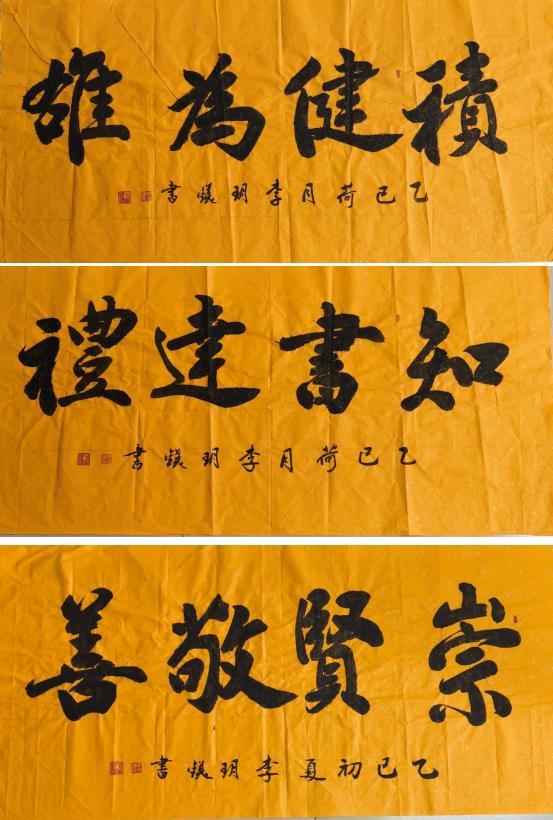 積健為雄
乙巳荷月李玥嶬書
知書達禮
乙巳荷月李玥嶬書
崇賢敬善
乙巳初夏李玥嶬書